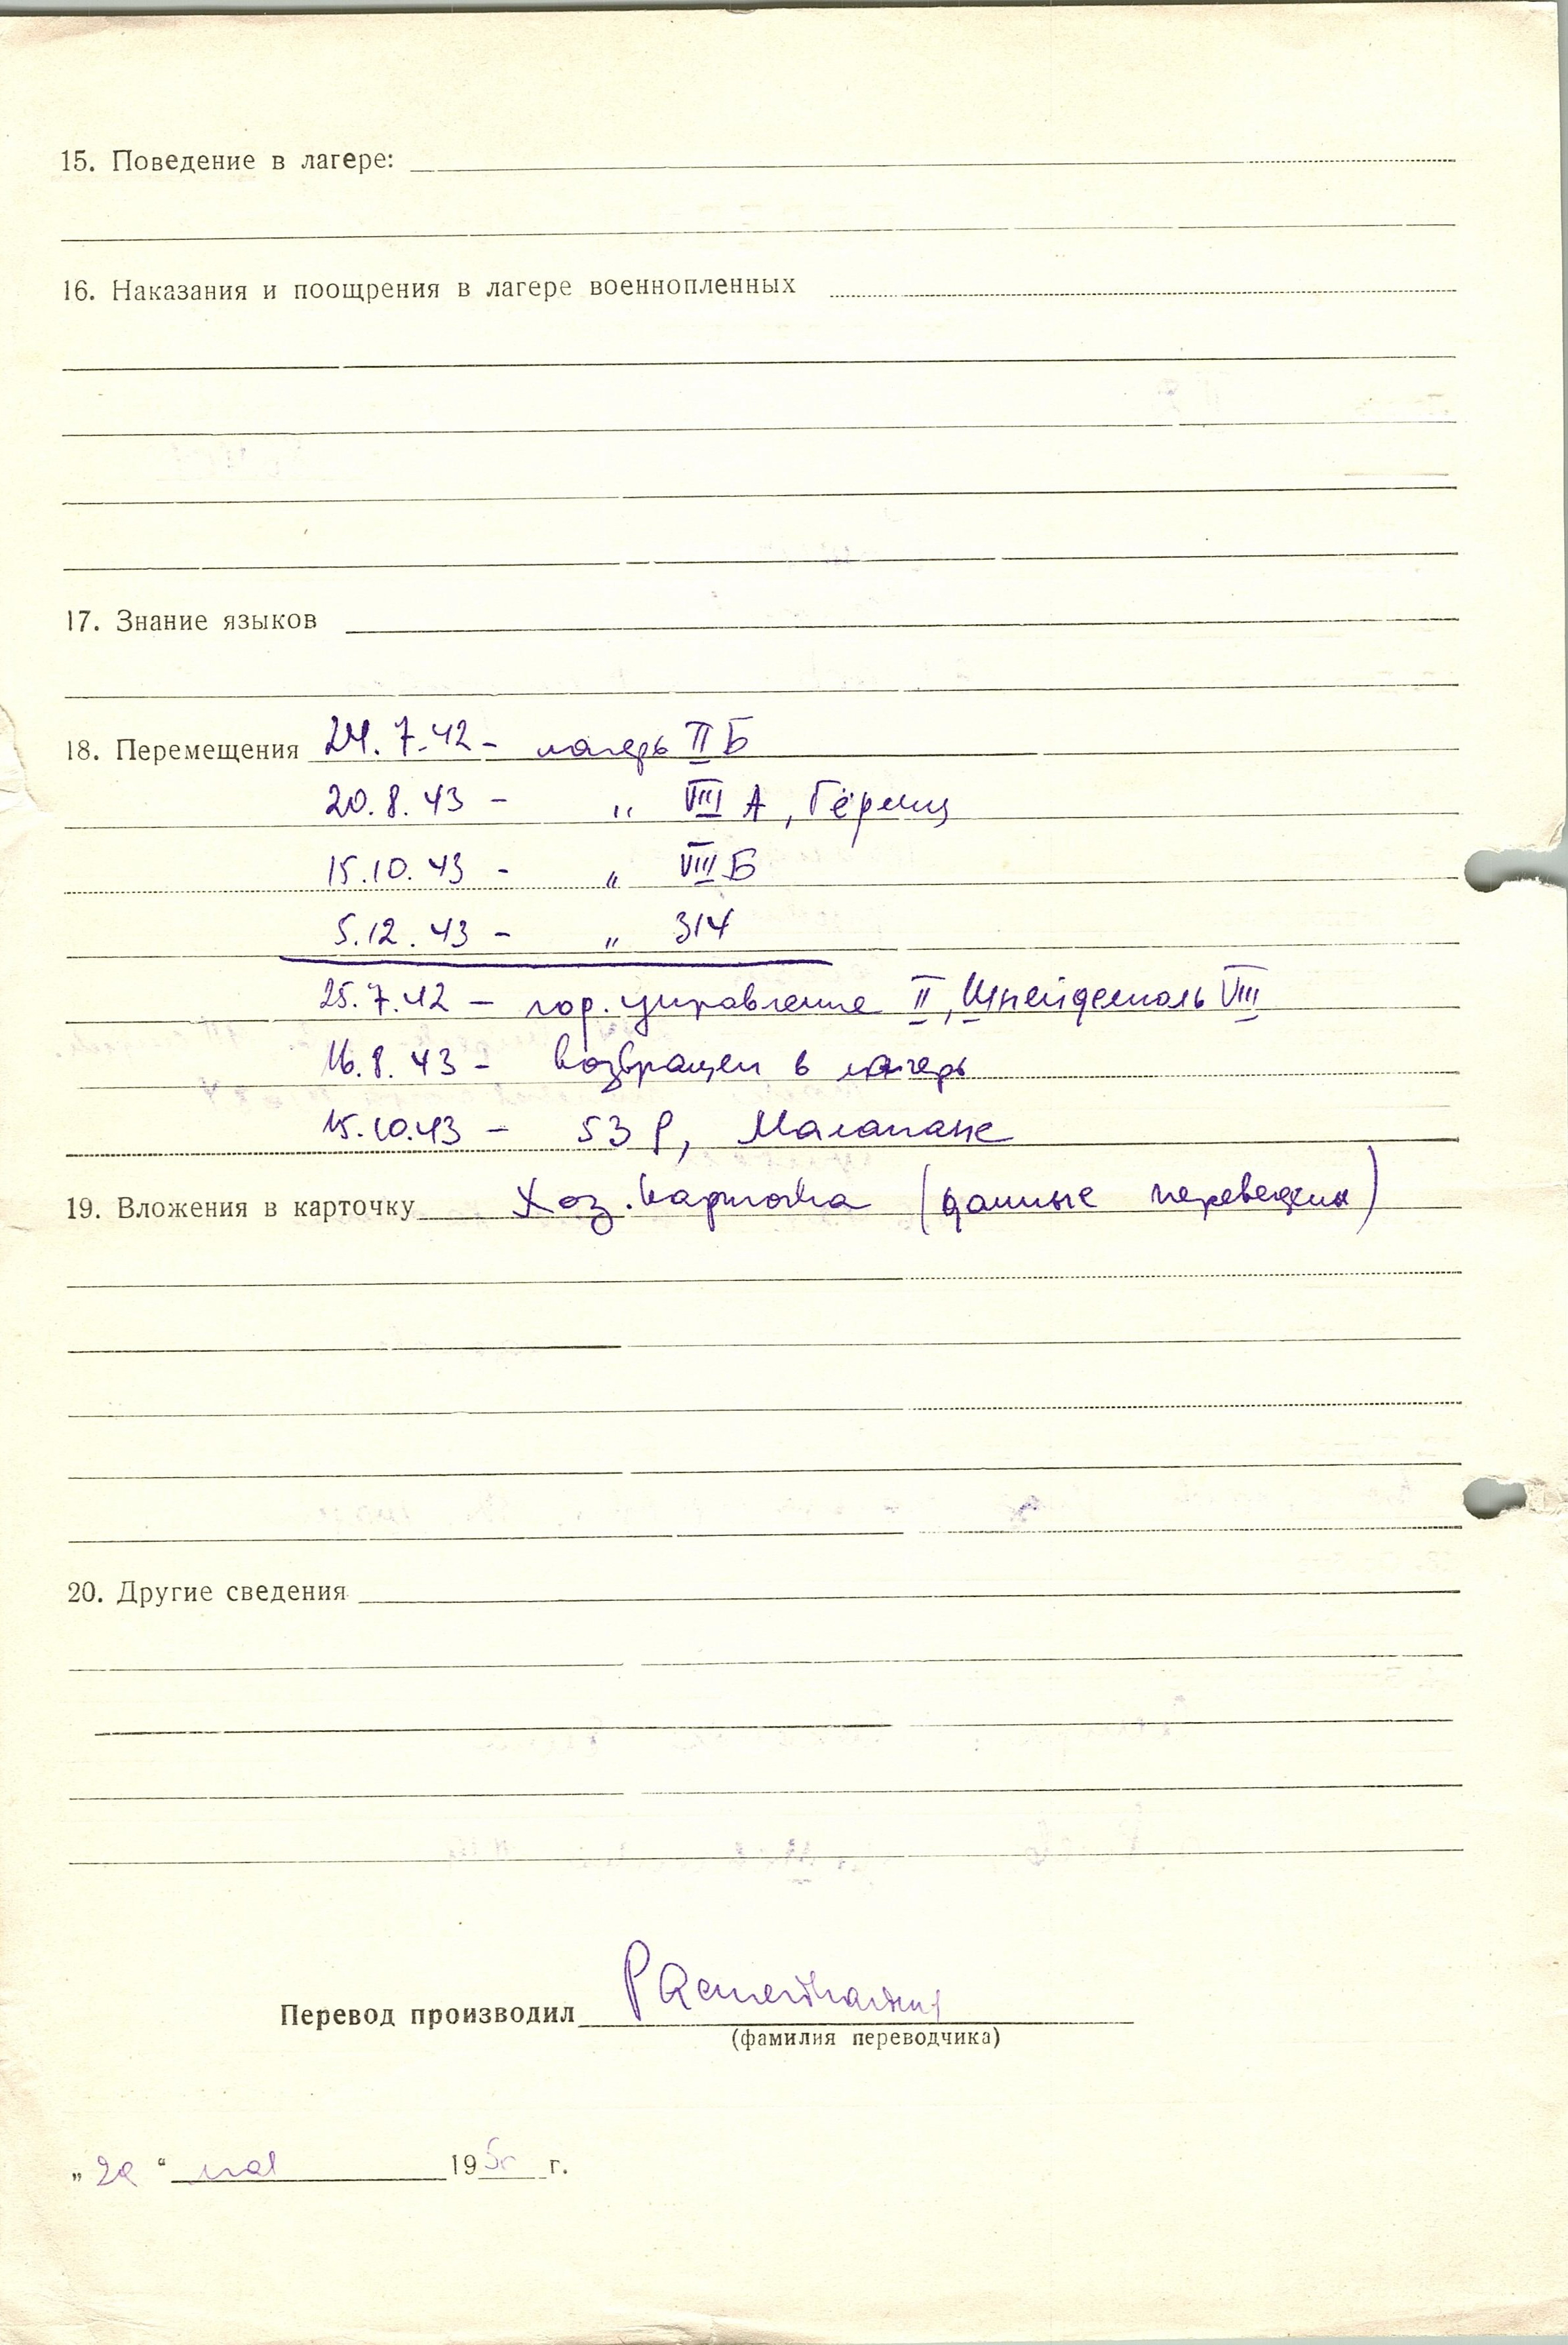 15. Поведение в лагере:
16. Наказания и поощрения в лагере военнопленных
17. Знание языков
18. Перемещения 24.7.42 - лагерь II Б
20.8.43 - " VIII А, Гёрлиц
15.10.43 - " VIII Б
5.12.43 - " 314
25.7.42 - гор. управление II, Шнейдемюль VIII
16.8.43 - возвращен в лагерь
15.10.43 - 53 Р, Малапане
19. Вложения в карточку Хоз. карточка (данные переведены)
20. Другие сведения
Перевод производил
(фамилия переводчика)
" " мая 195 г.